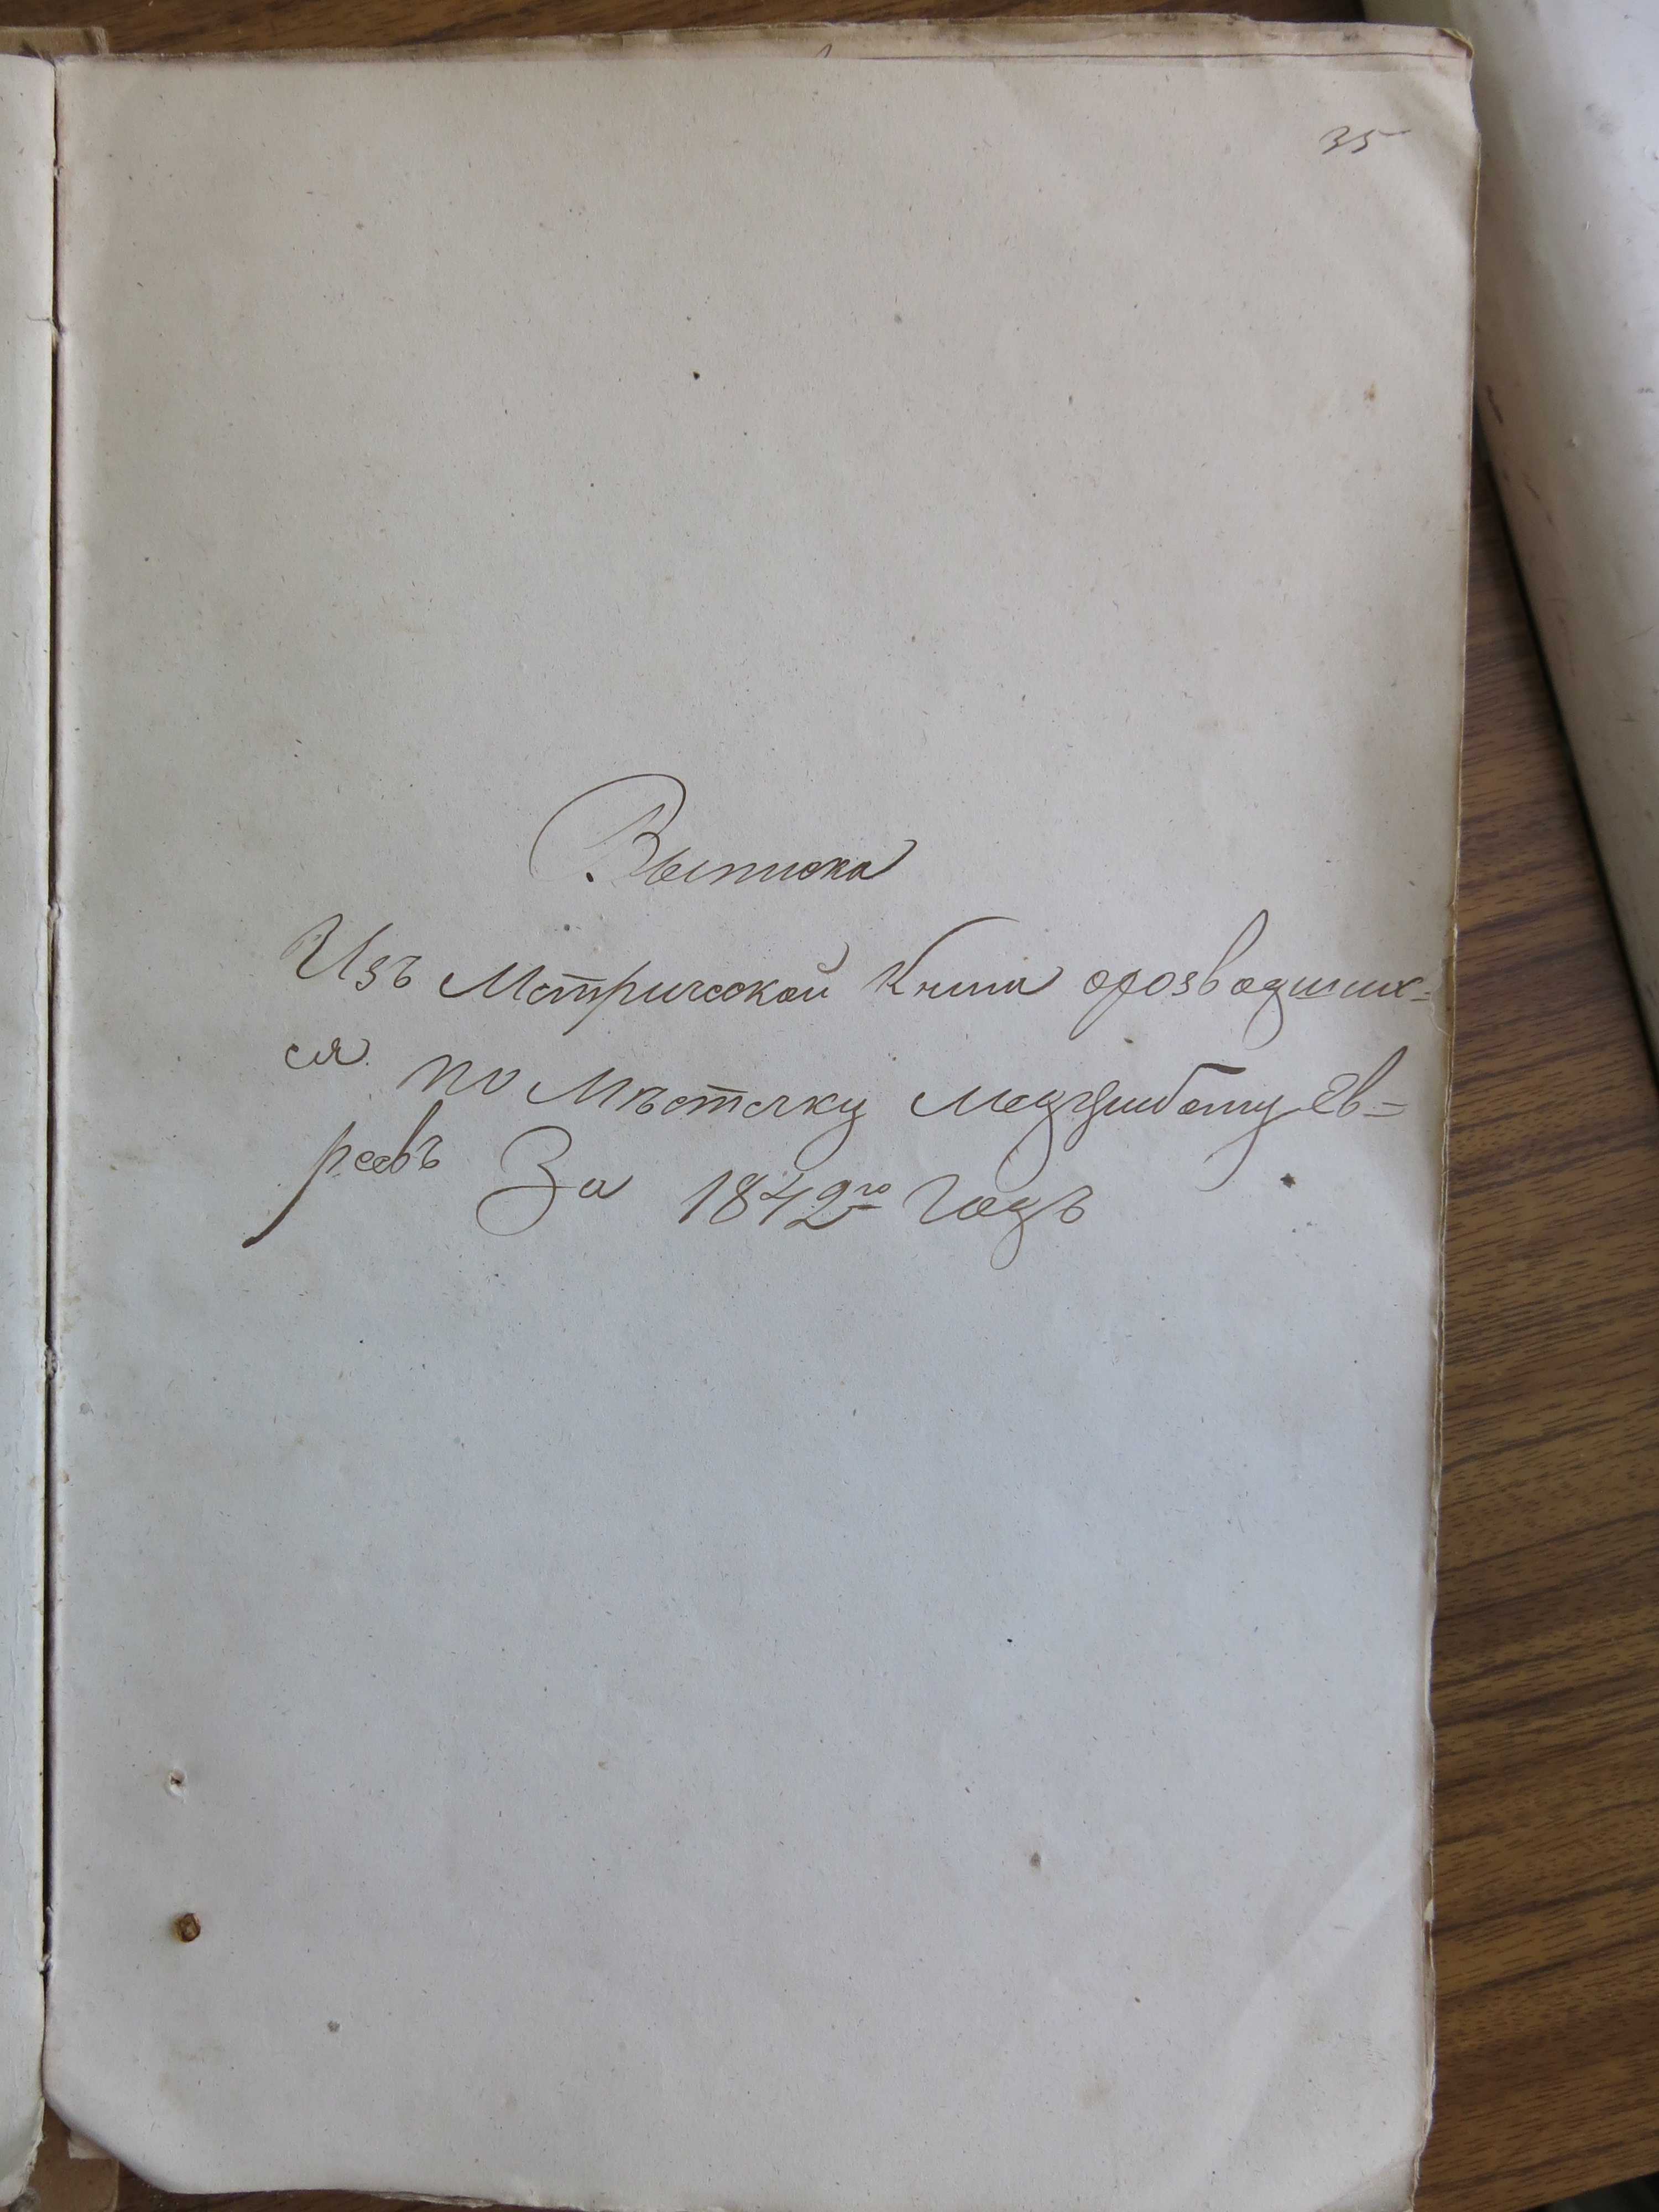 35
Выписка
Изъ Метрической Книги орозводивших=
ся по Мѣстечку Меджибожу Ев=
реевъ За 1842го Годъ